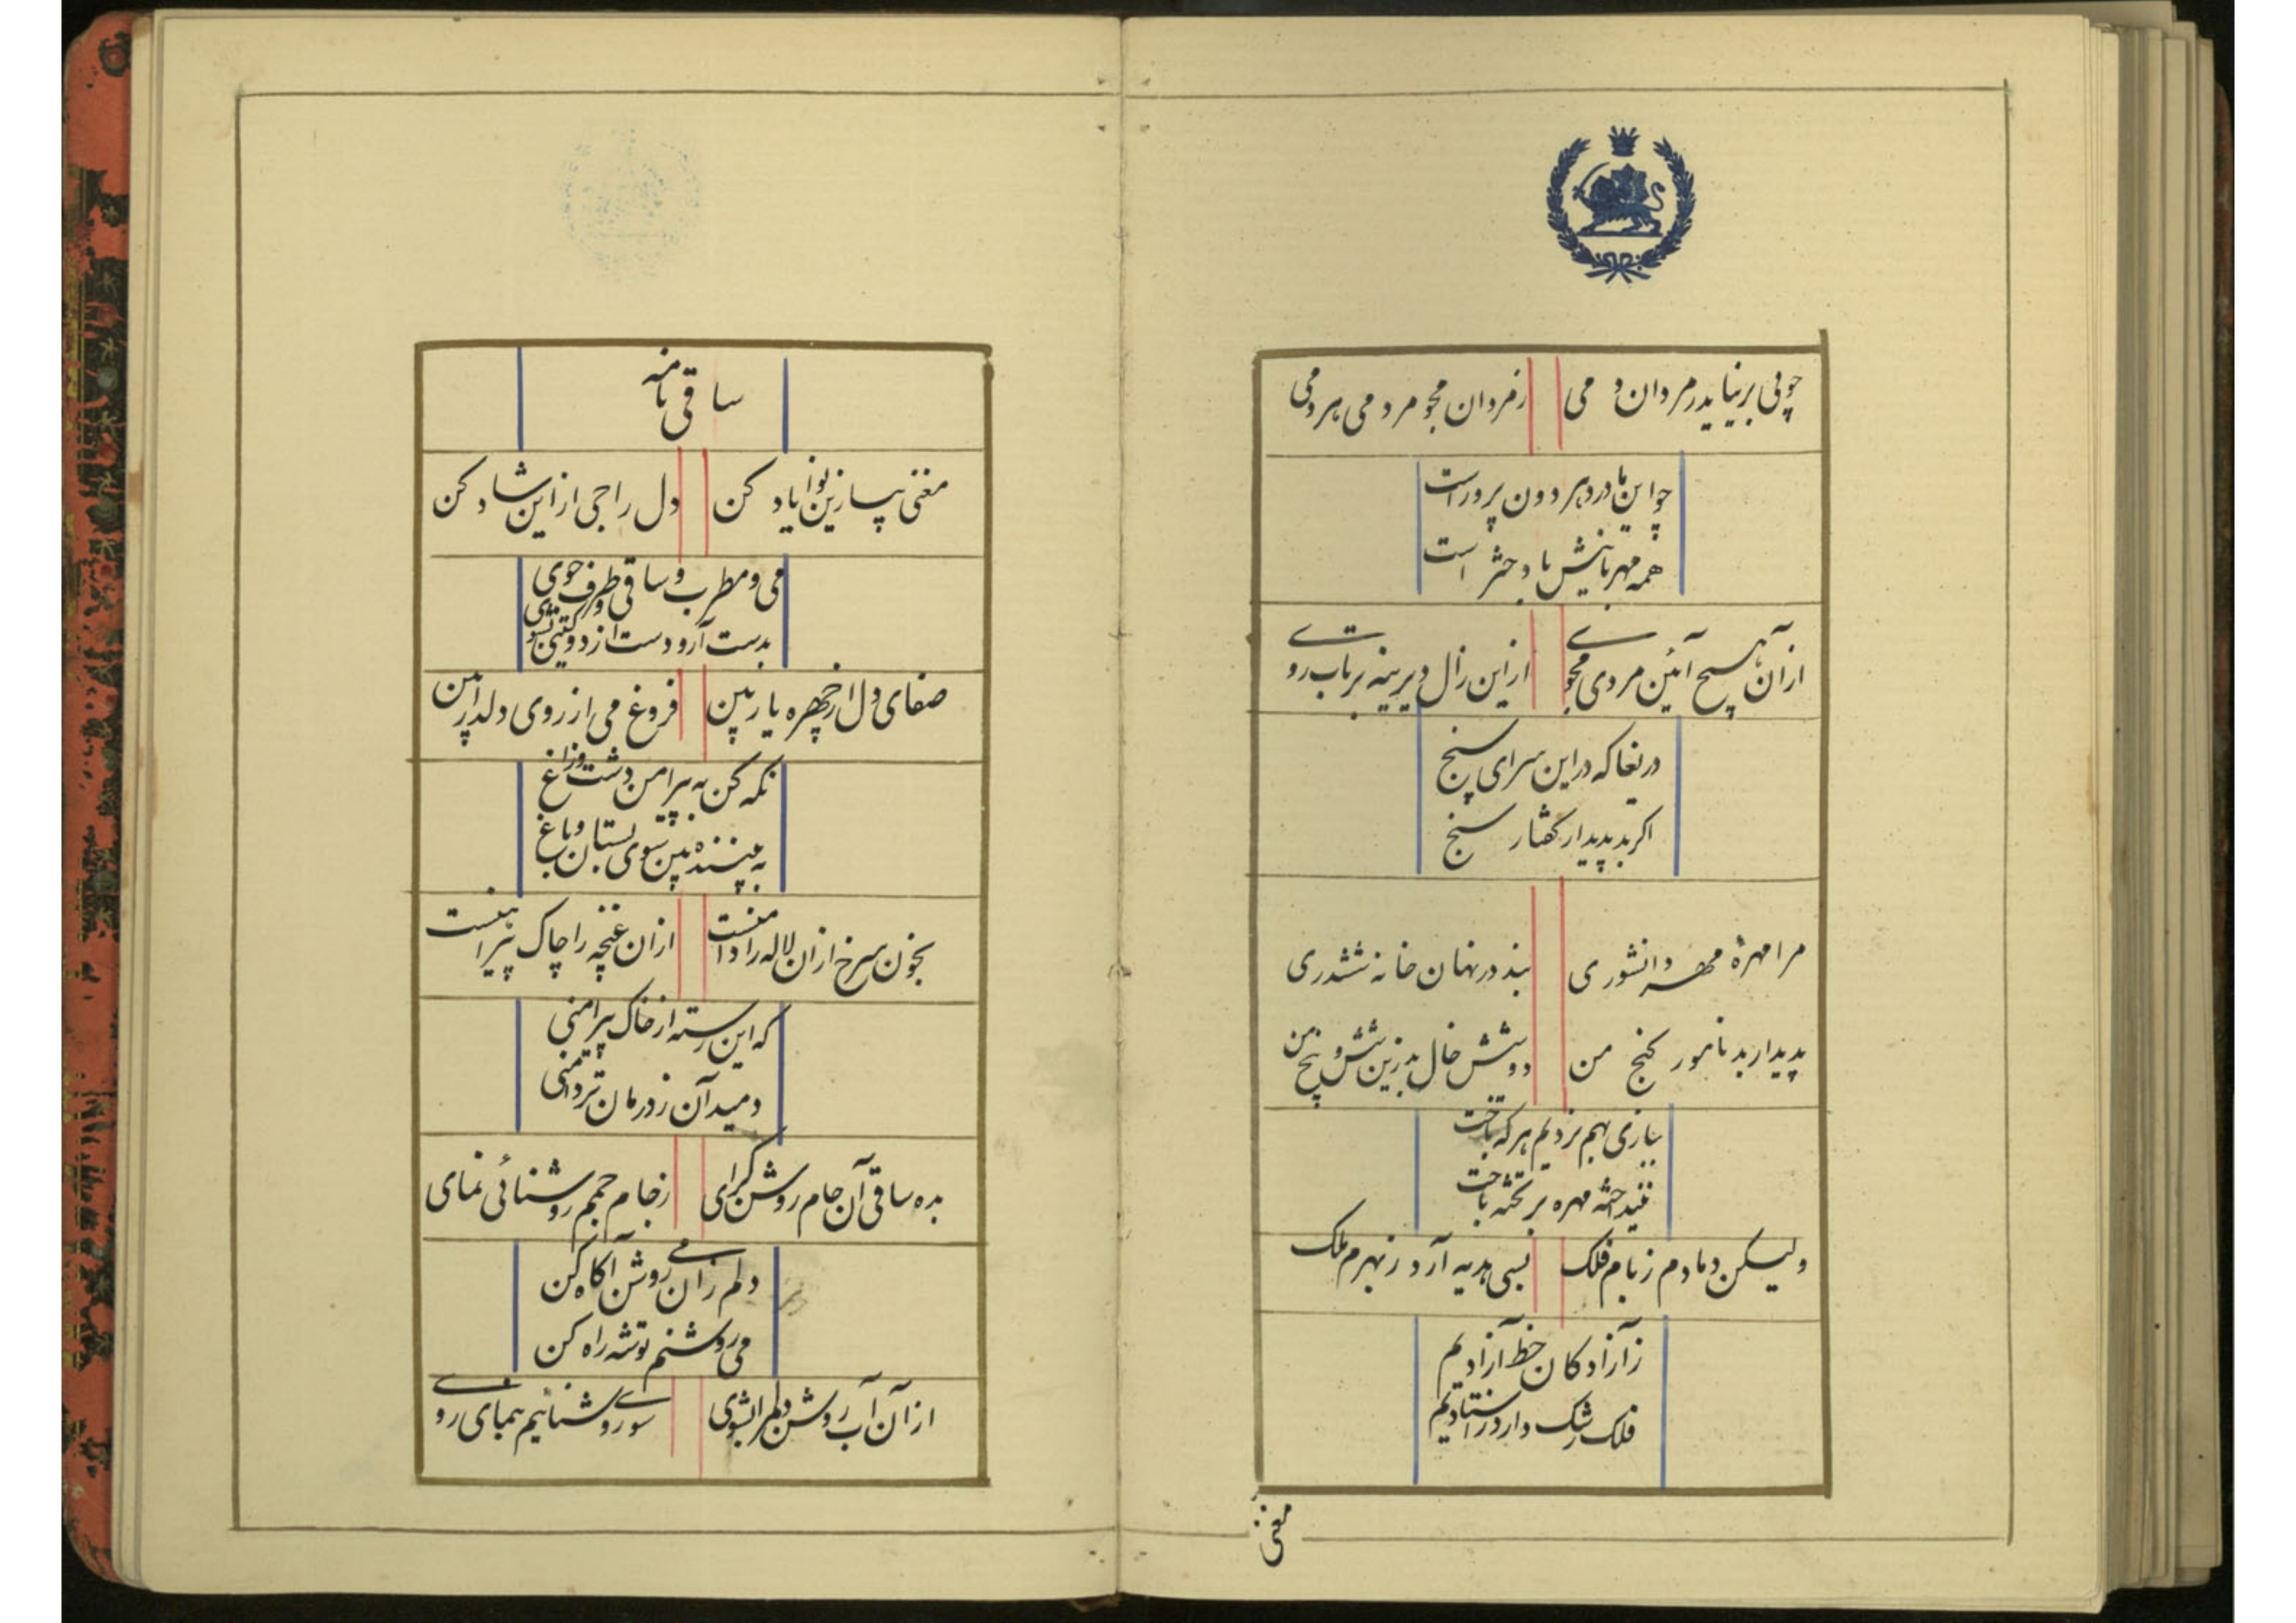 چو می برنیاید ز مردان و می
ز مردان مجو مردمی هر دمی
چو این مادر دهر دون پرور است
همه مهربانیش با دختر است
از آن هیچ آئین مردی مجوی
از این زال دیرینه برتاب روی
دریغا که در این سرای سپنج
اگر بد پدیدار گفتار سنج
مرا مهرهٔ مهر دانشوری
نبد در نهان خانه ششدری
پدیدار بد نامور گنج من
دو شش خال بد زین شش و پنج من
ببازی بهم نرد یم هر که باخت
مهره بر تخته باخت
ولیکن دمادم ز بام فلک
بسی هدیه آرد ز بهرم ملک
ز آزادگان خط آزادیم
فلک رشک دارد ز استادیم
مغنی
ساقی نامه
مغنی بساز این نوا یاد کن
دل راجی از این نوا شاد کن
می و مطرب و ساقی و طرف جوی
بدست آر و دست از دو گیتی بشوی
صفای دل از چهره یار بین
فروغ می از روی دلدار بین
نگه کن به پیرامن دشت و راغ
به بیننده بین سوی بستان و باغ
بخون سرخ از آن لاله را دامنست
از آن غنچه را چاک پیراهنست
که این رسته از خاک پیرامنی
دمید آن ز درمان تردامنی
بده ساقی آن جام روشن گرای
ز جام جمم روشنائی نمای
دلم زان می روشن آگاه کن
می روشنم توشه راه کن
از آن آب روشن دلم را بشوی
سوی روشنائیم بنمای روی